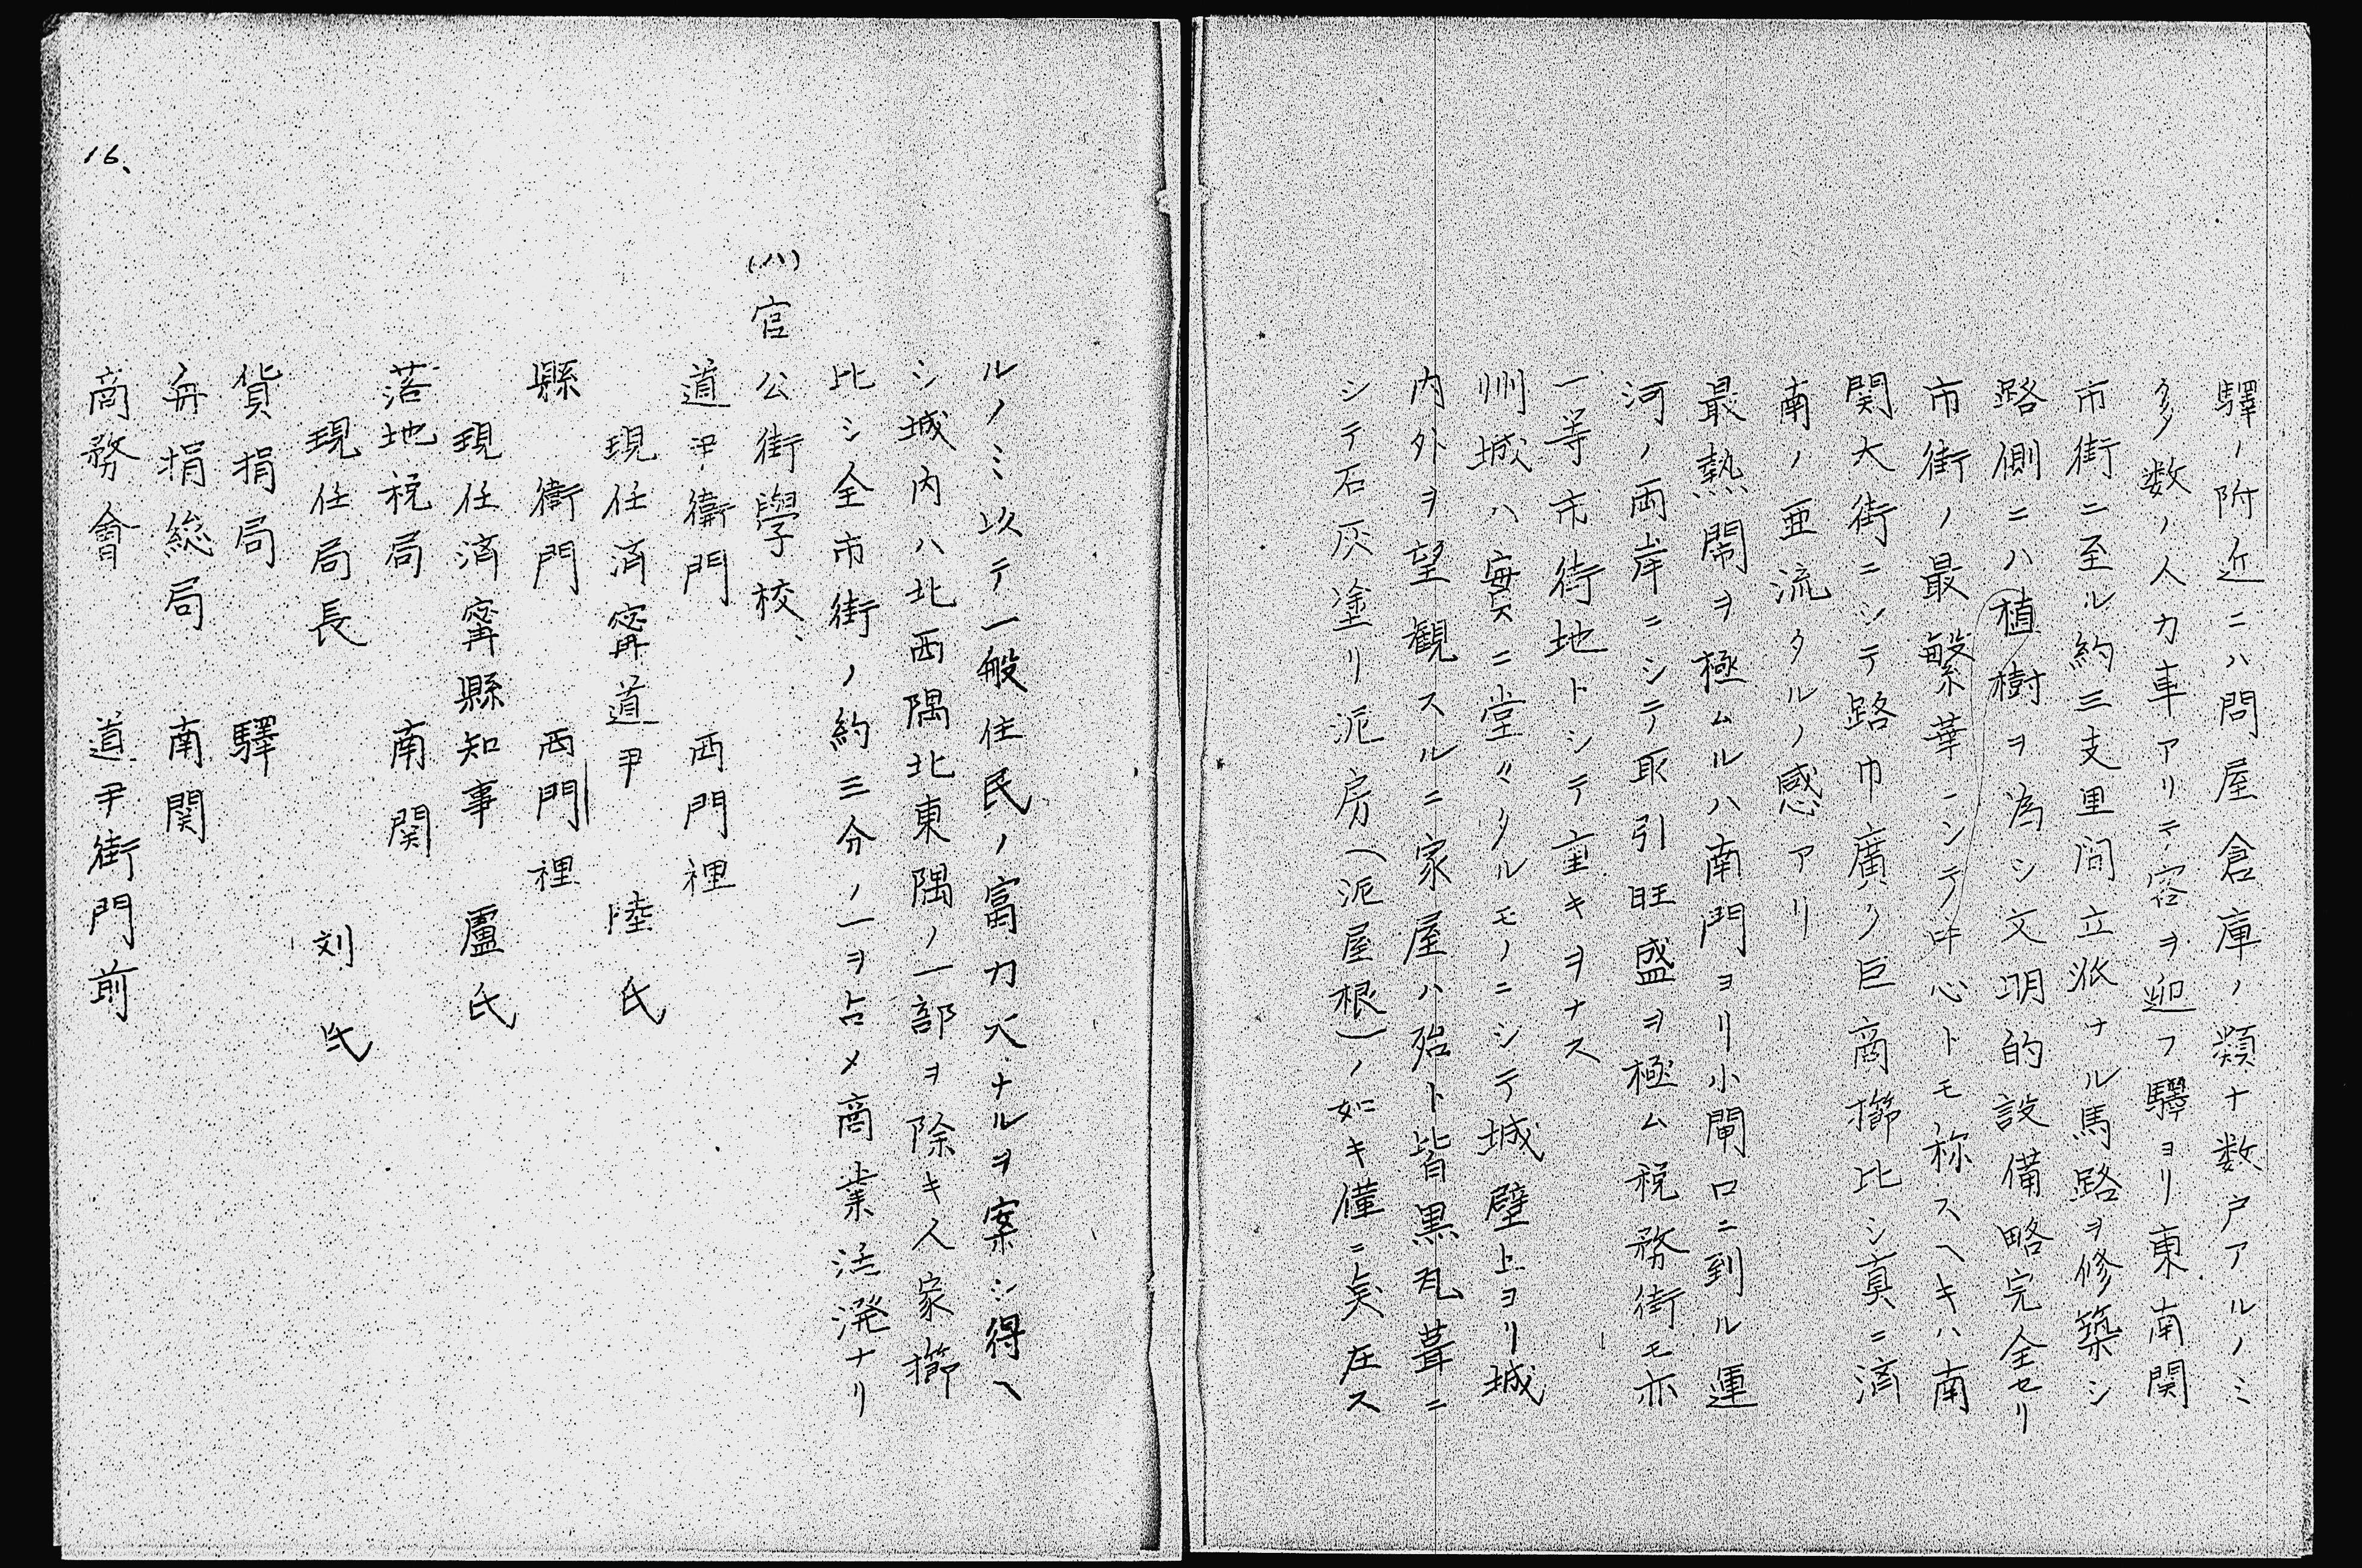 驛ノ附近ニハ問屋倉庫ノ類十数戸アルノミ
多数ノ人力車アリテ客ヲ迎フ驛ヨリ東南関
市街ニ至ル約三支里間立派ナル馬路ヲ修築シ
路側ニハ植樹ヲ為シ文明的設備略完全セリ
市街ノ最繁華ニシテ中心トモ称スヘキハ南
関大街ニシテ路巾廣ク巨商櫛比シ真ニ済
南ノ亜流タルノ感アリ
最熱閙ヲ極ムルハ南門ヨリ小閘口ニ到ル運
河ノ両岸ニシテ取引旺盛ヲ極ム税務街モ亦
一等市街地トシテ重キヲナス
州城ハ実ニ堂々タルモノニシテ城壁上ヨリ城
内外ヲ望観スルニ家屋ハ殆ト皆黒瓦葺ニ
シテ石灰塗リ泥房(泥屋根)ノ如キ僅ニ矣在ス
ルノミ以テ一般住民ノ富力大ナルヲ案シ得ヘ
シ城内ハ北西隅北東隅ノ一部ヲ除キ人家櫛
比シ全市街ノ約三分ノ一ヲ占メ商業活溌ナリ
(ハ)官公街學校、
道尹衙門 西門裡
現任済寗道尹 陸氏
縣衙門 西門裡
現任済寗縣知事 盧氏
落地税局 南関
現任局長 刘氏
貨捐局 驛
舟捐総局 南関
商務會 道尹街門前
16、